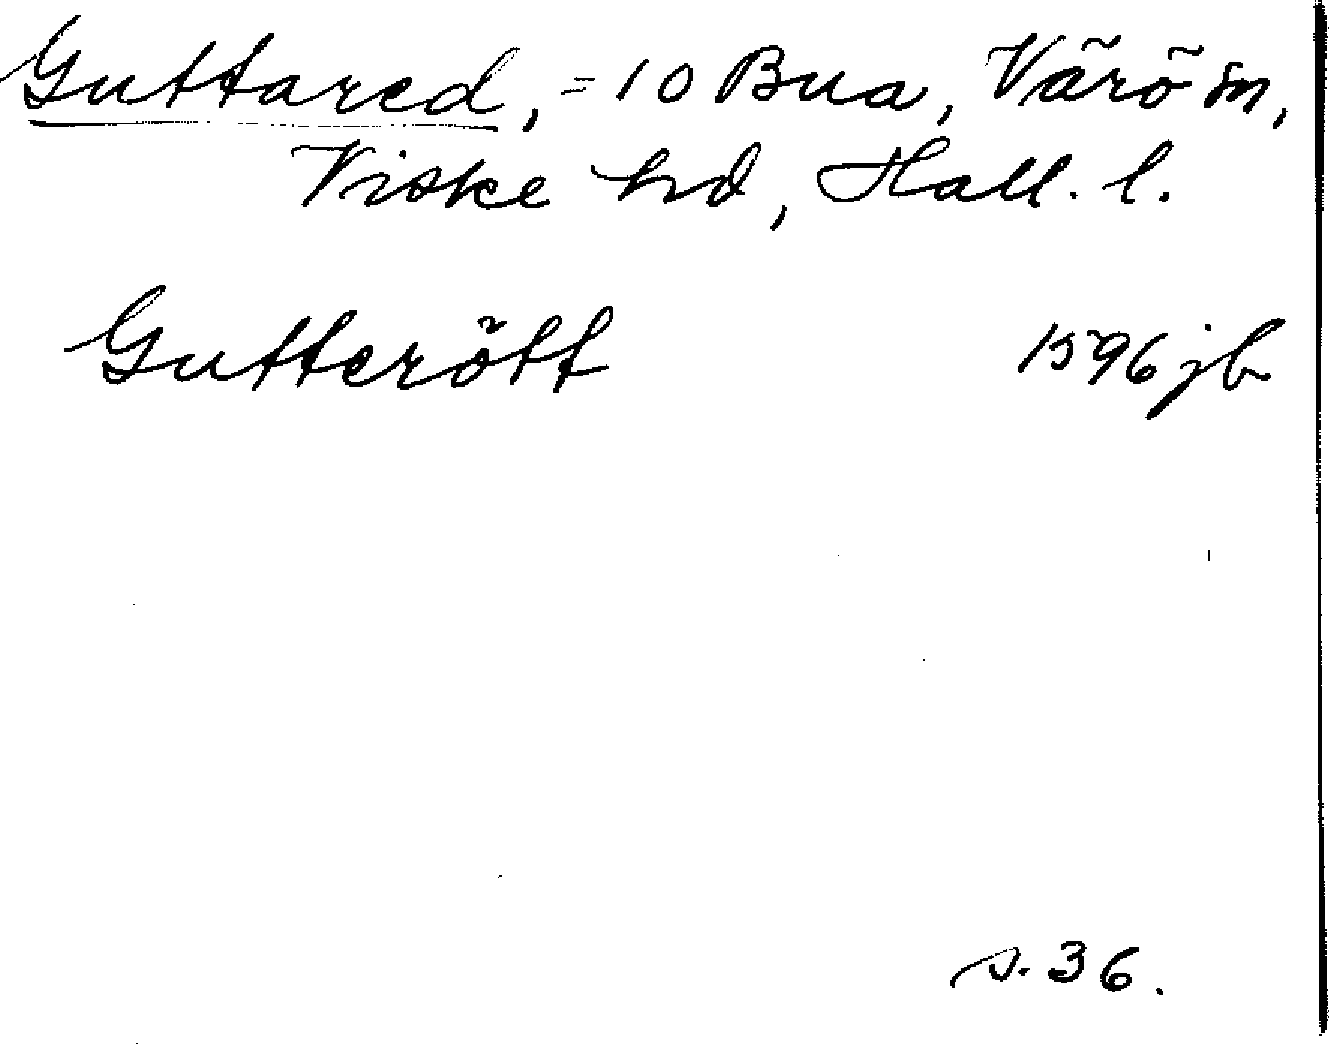 Guttared, = 10 Bua, Värö sn,
Viske hd, Hall. l.
Gutterött 1596 jb
s. 36.